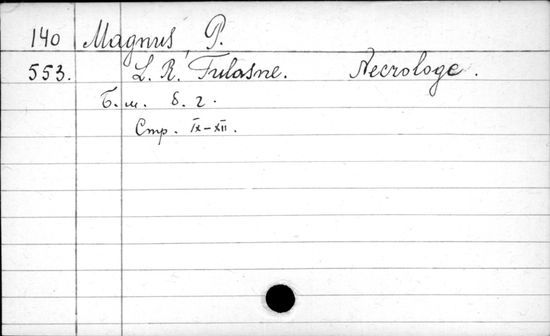 140 Magnus, P.
553. L. R. Tulasne. Necrologe.
Б. м. б. г.
Стр. IX-XII.